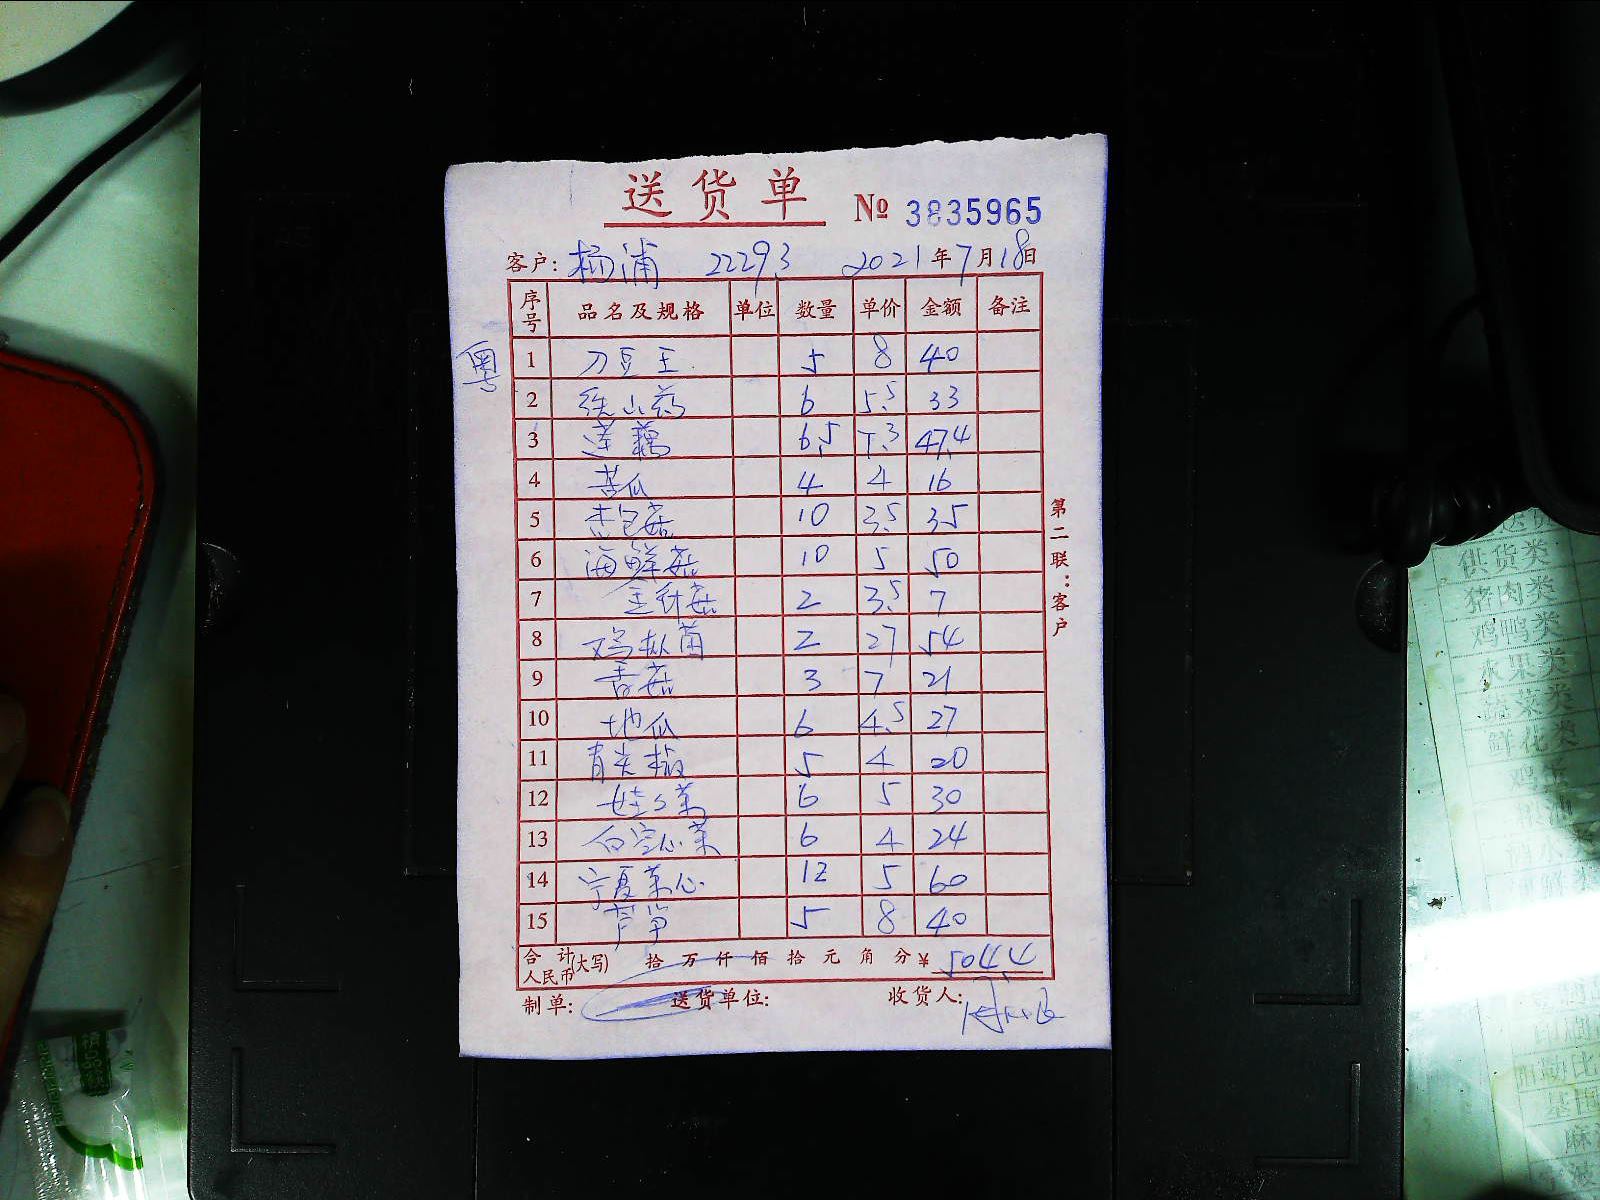 送货单 № 3835965
客户: 杨浦 22293 2021年7月18日
序号 品名及规格 单位 数量 单价 金额 备注
粤
1 刀豆王 5 8 40
2 铁山药 6 5.5 33
3 莲藕 6.5 7.3 47.4
4 苦瓜 4 4 16
5 杏包菇 10 3.5 35
6 海鲜菇 10 5 50
7 金针菇 2 3.5 7
8 鸡枞菌 2 27 54
9 香菇 3 7 21
10 地瓜 6 4.5 27
11 青尖椒 5 4 20
12 娃娃菜 6 5 30
13 白空心菜 6 4 24
14 宁夏菜心 12 5 60
15 芦笋 5 8 40
合计人民币(大写) 拾 万 仟 佰 拾 元 角 分 ¥ 504.4
制单: 送货单位: 收货人:
第二联:客户
送货
供货类
猪肉类
鸡鸭类
水果类
蔬菜类
鲜花类
鸡蛋